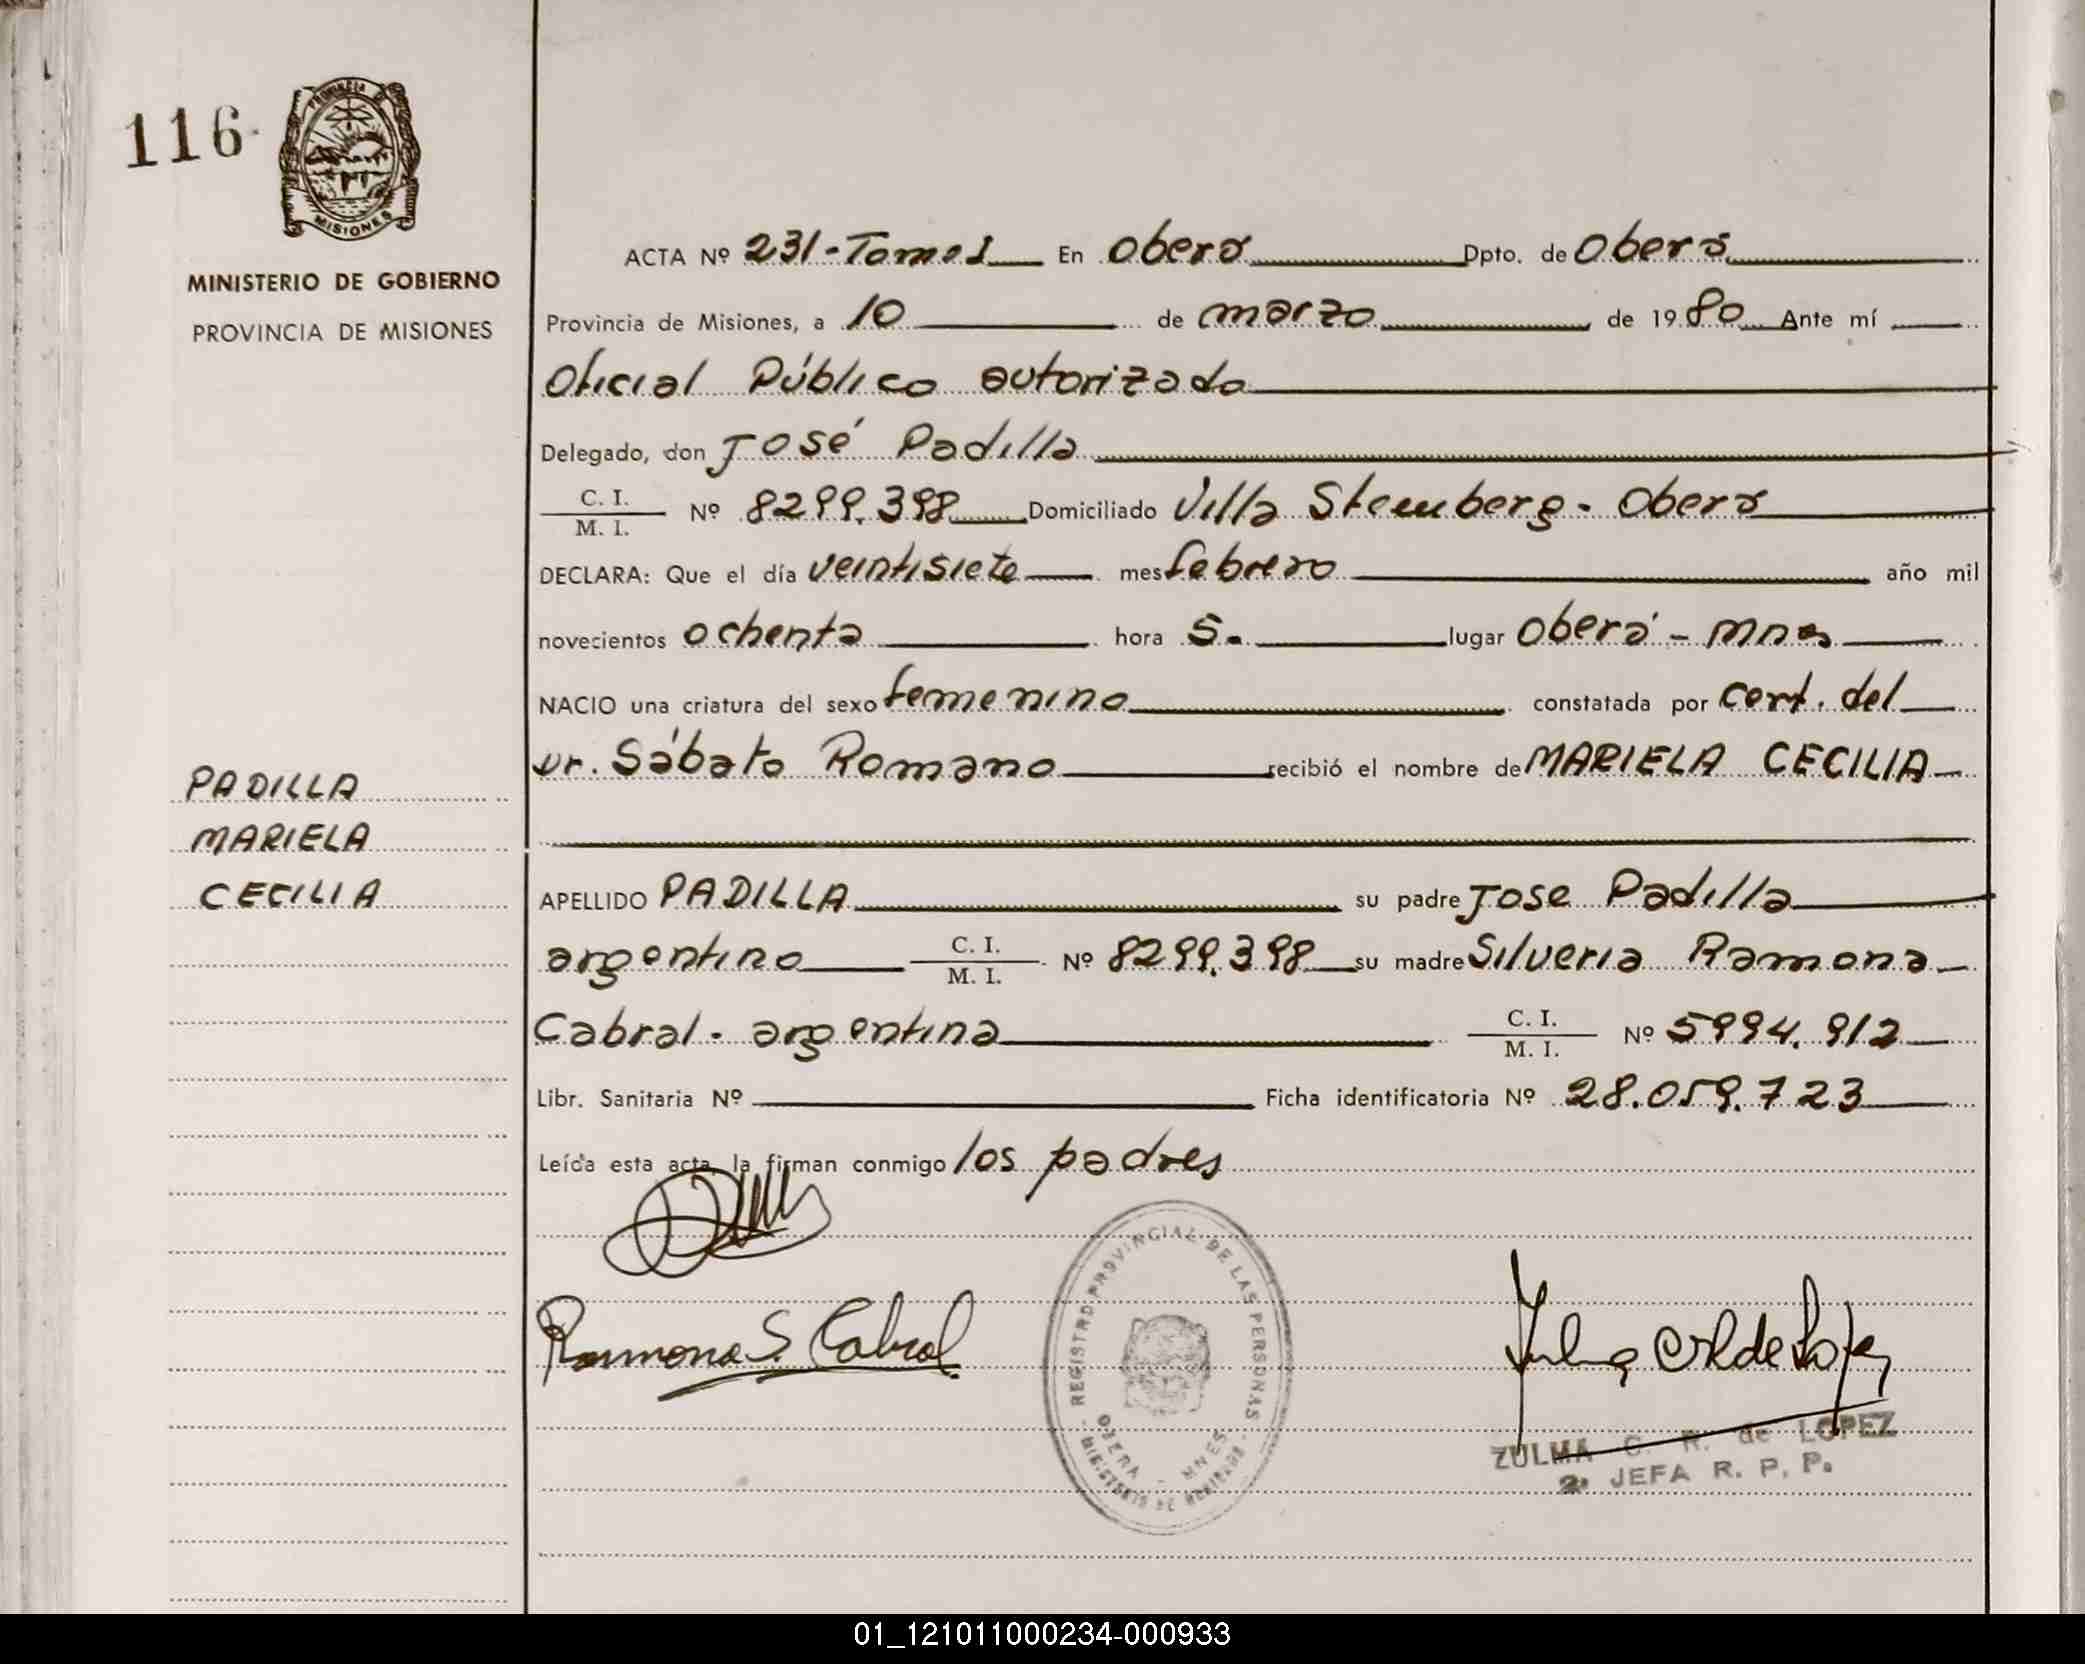 116
PROVINCIA DE
MISIONES
MINISTERIO DE GOBIERNO
PROVINCIA DE MISIONES
ACTA Nº 231-Tomo I En Oberá Dpto. de Oberá
Provincia de Misiones, a 10 de marzo de 1980 Ante mí
Oficial Público autorizado
Delegado, don José Padilla
C. I.
M. I. Nº 8299.398 Domiciliado Villa Stemberg - Oberá
DECLARA: Que el día veintisiete mes febrero año mil
novecientos ochenta hora 5. lugar Oberá - Mnes
NACIO una criatura del sexo femenino constatada por cert. del
Dr. Sábato Romano recibió el nombre de MARIELA CECILIA
PADILLA
MARIELA
CECILIA
APELLIDO PADILLA su padre Jose Padilla
argentino C. I.
M. I. Nº 8299.398 su madre Silveria Ramona
Cabral - argentina C. I.
M. I. Nº 5994.912
Libr. Sanitaria Nº Ficha identificatoria Nº 28.059.723
Leída esta acta, la firman conmigo los padres
Ramona S. Cabral
REGISTRO PROVINCIAL DE LAS PERSONAS
OBERA - MNES
MINISTERIO DE GOBIERNO
Zulma C R de Lopez
ZULMA C. R. de LOPEZ
2. JEFA R. P. P.
01_121011000234-000933